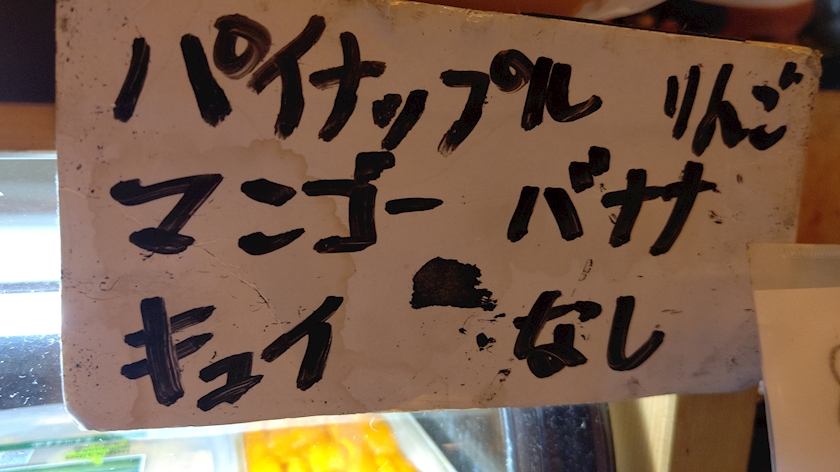 パイナップル りんご
マンゴー バナナ
キュイ なし